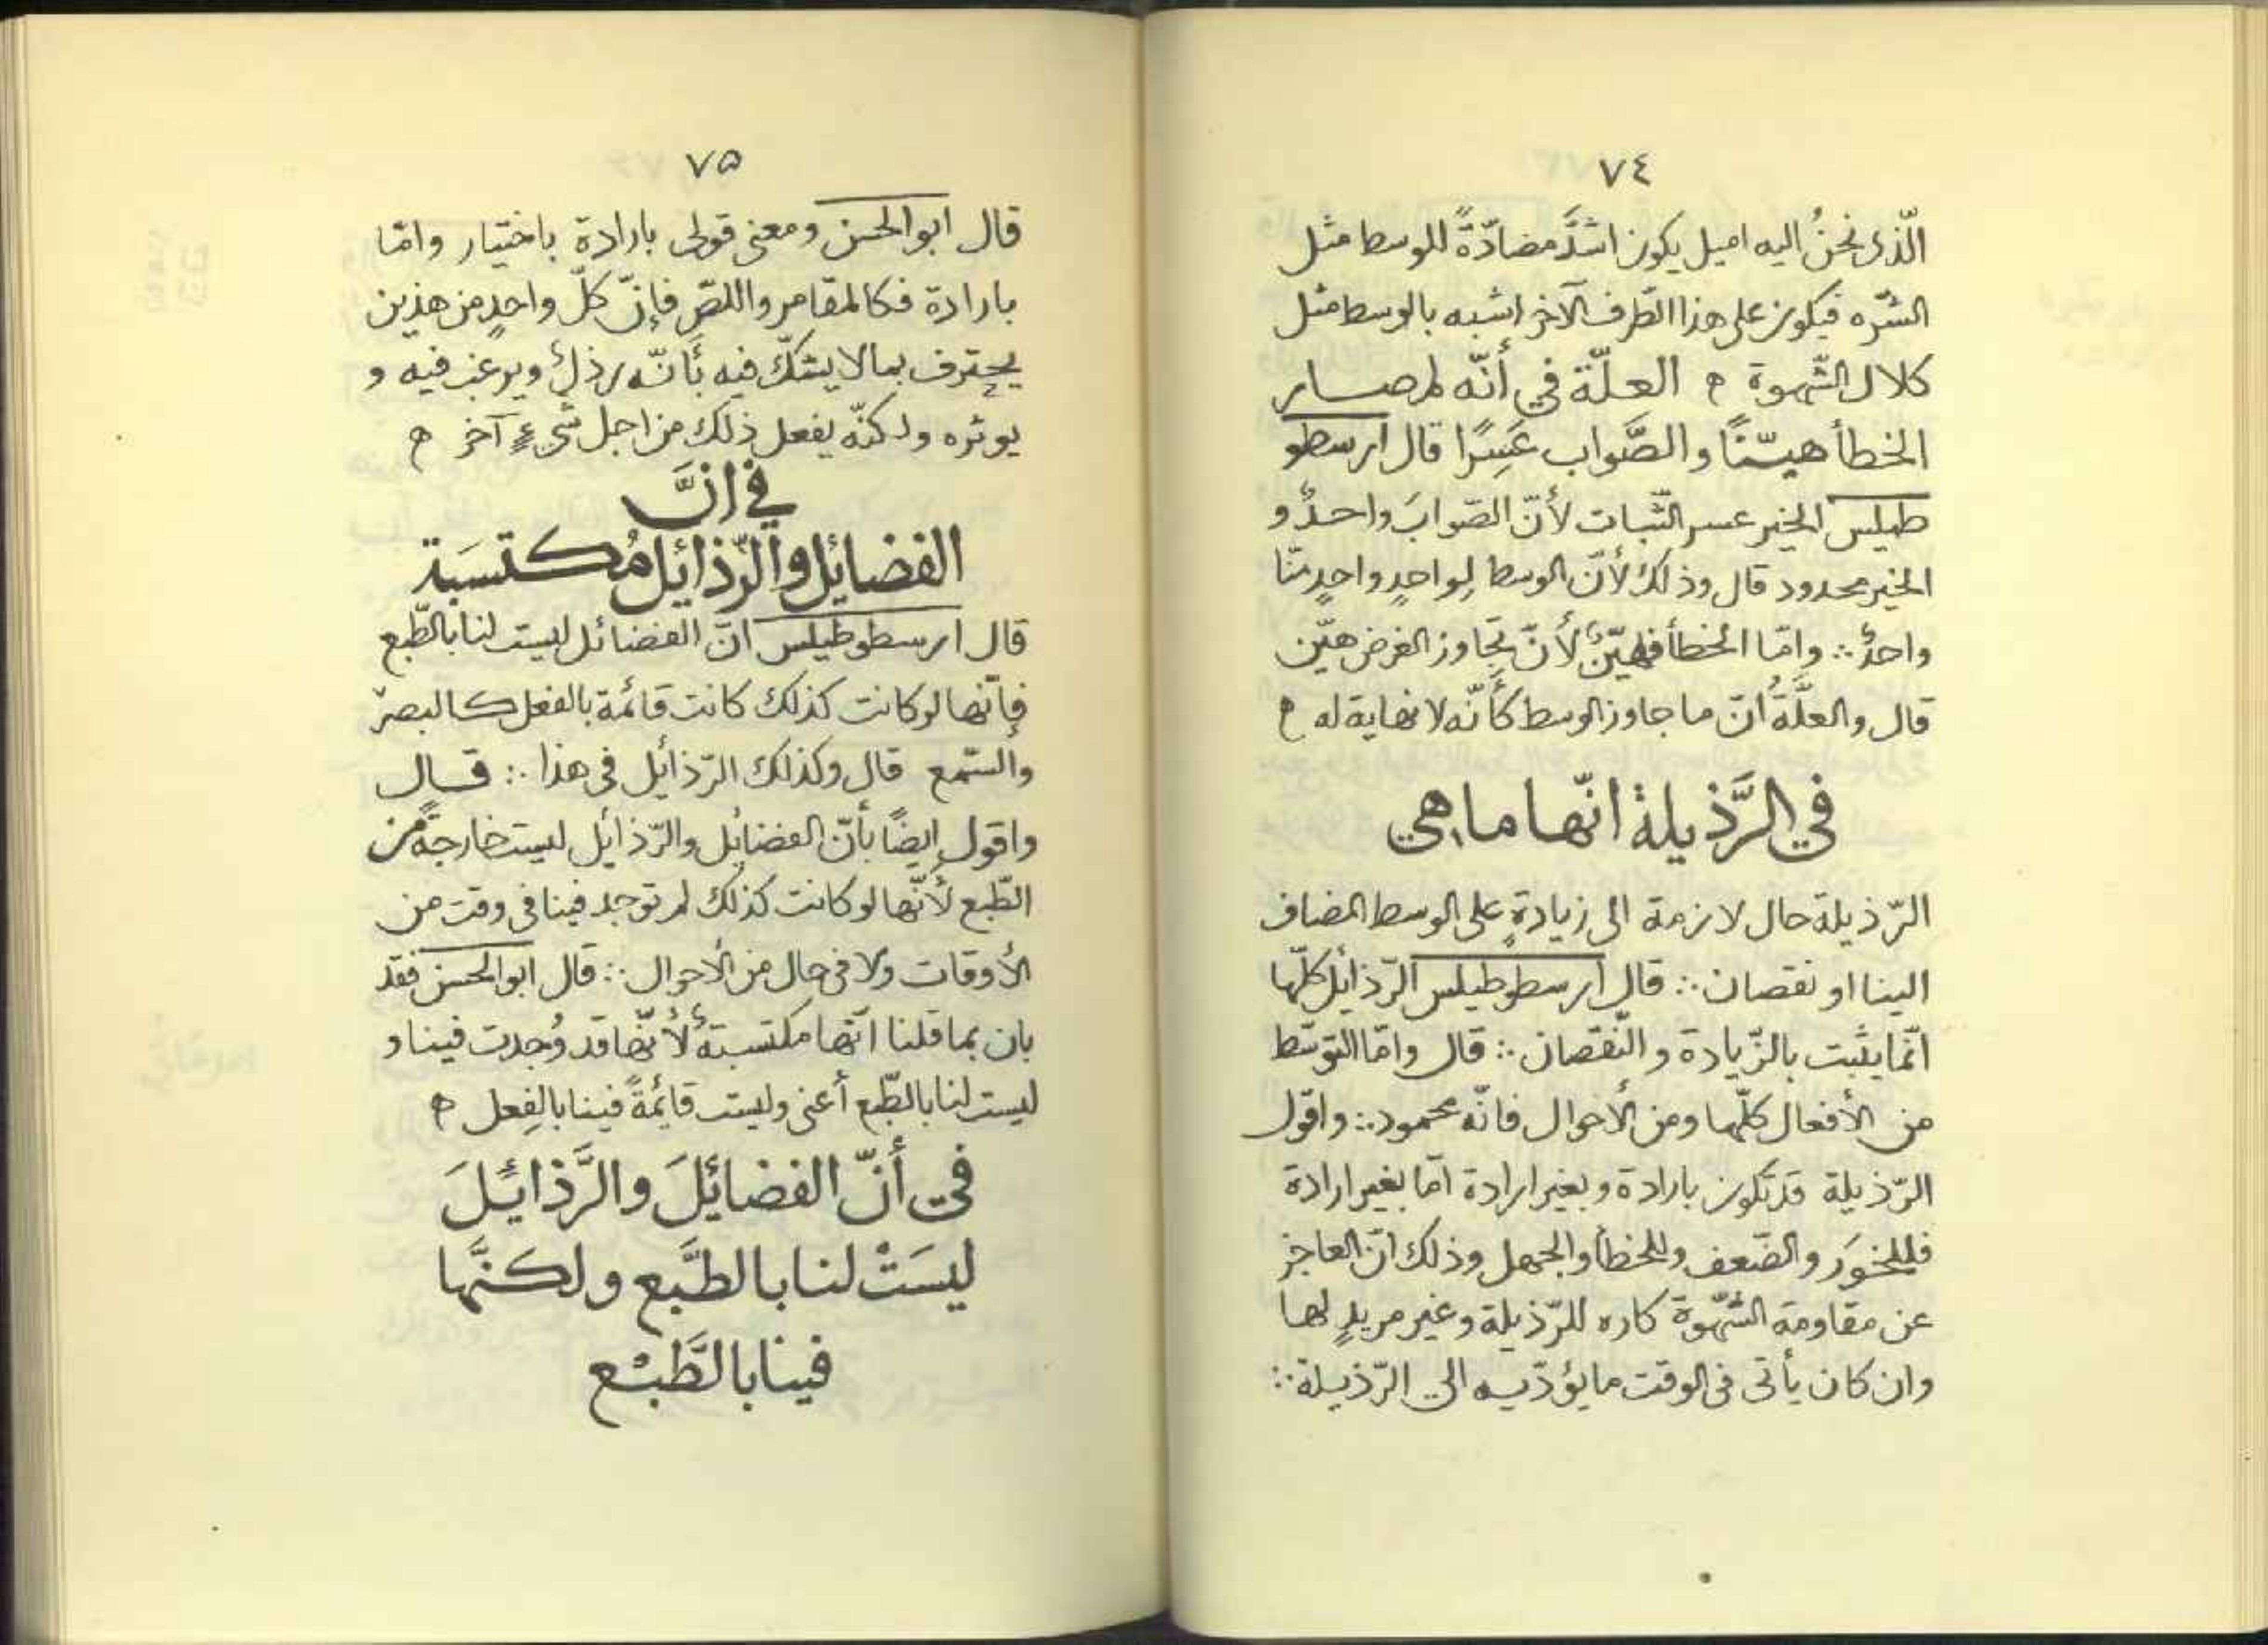 ٧٤
الّذى نحنُ اليه اميل يكون اشدَّ مضادّةً للوسط مثل
الشّره فيكون على هذا الطّرف الآخر اشبه بالوسط مثل
كلال الشّهوة ۞ العلّة في أنّه لم صار
الخطأ هيّنًا والصَّواب عَسِرًا قال ارسطو
طيلس الخير عسر الثّبات لأنّ الصّوابَ واحدٌ و
الخير محدود قال وذلك لأنّ الوسط لِواحدٍ واحدٍ منّا
واحدٌ ∴ وامّا الخطأ فهيّنٌ لأنّ تجاوز الغرض هيّن
قال والعلَّةُ انّ ما جاوز الوسط كأنّه لا نهاية له ۞
في الرَّذيلة انّها ما هي
الرّذيلة حال لازمة الى زيادةٍ على الوسط المضاف
الينا او نقصان ∴ قال ارسطوطيلس الرّذائل كلّها
انّما يثبت بالزّيادة والنّقصان ∴ قال وامّا التوسّط
من الأفعال كلّها ومن الأحوال فانّه محمود ∴ واقول
الرّذيلة قد تكون بارادة وبغير ارادة امّا بغير ارادة
فللخَوَر والضّعف وللخطأ والجهل وذلك انّ العاجز
عن مقاومة الشّهوة كاره للرّذيلة وغير مريدٍ لها
وان كان يأتى فى الوقت ما يؤدّيه الى الرّذيلة ∴
٧۵
قال ابوالحسن ومعنى قولى بارادة باختيار وامّا
بارادة فكالمقامر واللصّ فإنّ كلّ واحدٍ من هذين
يحترف بما لا يشكّ فيه بأنّه رذلٌ ويرغب فيه و
يوثره ولكنّه يفعل ذلك من اجل شىءٍ آخر ۞
في انَّ
الفضايل والرّذائل مُكتسَبة
قال ارسطوطيلس انّ الفضائل ليست لنا بالطّبع
فإنّها لو كانت كذلك كانت قائمة بالفعل كالبصر
والسّمع قال وكذلك الرّذائل فى هذا ∴ قال
واقول ايضًا بأنّ الفضايل والرّذائل ليست خارجةً من
الطّبع لأنّها لو كانت كذلك لم توجد فينا فى وقت من
الأوقات ولا فى حال من الأحوال ∴ قال ابوالحسن فقد
بان بما قلنا انّها مكتسبةٌ لأنّها قد وُجدت فينا و
ليست لنا بالطّبع أعنى وليست قائمةً فينا بالفِعل ۞
في أنّ الفضائلَ والرَّذائلَ
ليسَتْ لنا بالطَّبع ولكنَّها
فينا بالطَّبْع